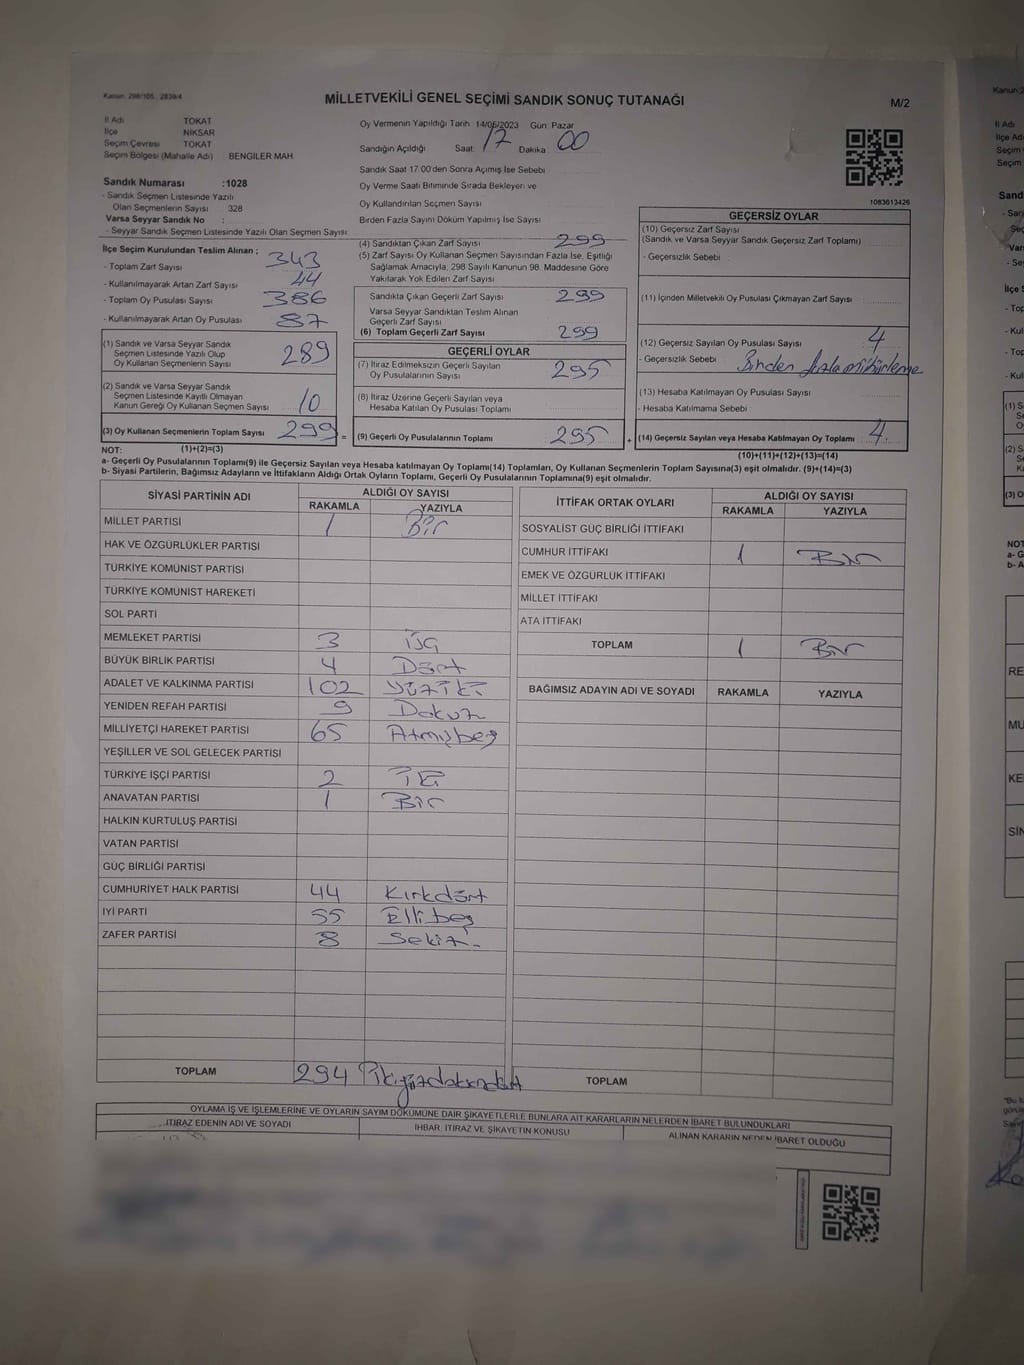 Kanun: 298/105, 2839/4
MİLLETVEKİLİ GENEL SEÇİMİ SANDIK SONUÇ TUTANAĞI
M/2
İl Adı TOKAT
İlçe NİKSAR
Seçim Çevresi TOKAT
Seçim Bölgesi (Mahalle Adı) BENGİLER MAH
Sandık Numarası :1028
- Sandık Seçmen Listesinde Yazılı
Olan Seçmenlerin Sayısı : 328
Varsa Seyyar Sandık No :
- Seyyar Sandık Seçmen Listesinde Yazılı Olan Seçmen Sayısı
Oy Vermenin Yapıldığı Tarih 14/05/2023 Gün: Pazar
Sandığın Açıldığı Saat: 17 Dakika 00
Sandık Saat 17:00'den Sonra Açılmış İse Sebebi
Oy Verme Saati Bitiminde Sırada Bekleyen ve
Oy Kullandırılan Seçmen Sayısı
Birden Fazla Sayım Döküm Yapılmış İse Sayısı
1083613426
İlçe Seçim Kurulundan Teslim Alınan ;
- Toplam Zarf Sayısı 343
- Kullanılmayarak Artan Zarf Sayısı 44
- Toplam Oy Pusulası Sayısı 386
- Kullanılmayarak Artan Oy Pusulası 87
(1) Sandık ve Varsa Seyyar Sandık
Seçmen Listesinde Yazılı Olup
Oy Kullanan Seçmenlerin Sayısı 289
(2) Sandık ve Varsa Seyyar Sandık
Seçmen Listesinde Kayıtlı Olmayan
Kanun Gereği Oy Kullanan Seçmen Sayısı 10
(3) Oy Kullanan Seçmenlerin Toplam Sayısı 299 =
(4) Sandıktan Çıkan Zarf Sayısı 299
(5) Zarf Sayısı Oy Kullanan Seçmen Sayısından Fazla İse, Eşitliği
Sağlamak Amacıyla, 298 Sayılı Kanunun 98. Maddesine Göre
Yakılarak Yok Edilen Zarf Sayısı
Sandıkta Çıkan Geçerli Zarf Sayısı 299
Varsa Seyyar Sandıktan Teslim Alınan
Geçerli Zarf Sayısı
(6) Toplam Geçerli Zarf Sayısı 299
GEÇERLİ OYLAR
(7) İtiraz Edilmeksizin Geçerli Sayılan
Oy Pusulalarının Sayısı 295
(8) İtiraz Üzerine Geçerli Sayılan veya
Hesaba Katılan Oy Pusulası Toplamı
(9) Geçerli Oy Pusulalarının Toplamı 295 +
GEÇERSİZ OYLAR
(10) Geçersiz Zarf Sayısı
(Sandık ve Varsa Seyyar Sandık Geçersiz Zarf Toplamı)
- Geçersizlik Sebebi
(11) İçinden Milletvekili Oy Pusulası Çıkmayan Zarf Sayısı
(12) Geçersiz Sayılan Oy Pusulası Sayısı 4
- Geçersizlik Sebebi Birden fazla mühürleme
(13) Hesaba Katılmayan Oy Pusulası Sayısı
- Hesaba Katılmama Sebebi
(14) Geçersiz Sayılan veya Hesaba Katılmayan Oy Toplamı 4
NOT: (1)+(2)=(3)
(10)+(11)+(12)+(13)=(14)
a- Geçerli Oy Pusulalarının Toplamı(9) ile Geçersiz Sayılan veya Hesaba katılmayan Oy Toplamı(14) Toplamları, Oy Kullanan Seçmenlerin Toplam Sayısına(3) eşit olmalıdır. (9)+(14)=(3)
b- Siyasi Partilerin, Bağımsız Adayların ve İttifakların Aldığı Ortak Oyların Toplamı, Geçerli Oy Pusulalarının Toplamına(9) eşit olmalıdır.
SİYASİ PARTİNİN ADI ALDIĞI OY SAYISI
RAKAMLA YAZIYLA
MİLLET PARTİSİ 1 Bir
HAK VE ÖZGÜRLÜKLER PARTİSİ
TÜRKİYE KOMÜNİST PARTİSİ
TÜRKİYE KOMÜNİST HAREKETİ
SOL PARTİ
MEMLEKET PARTİSİ 3 Üç
BÜYÜK BİRLİK PARTİSİ 4 Dört
ADALET VE KALKINMA PARTİSİ 102 Yüziki
YENİDEN REFAH PARTİSİ 9 Dokuz
MİLLİYETÇİ HAREKET PARTİSİ 65 Atmışbeş
YEŞİLLER VE SOL GELECEK PARTİSİ
TÜRKİYE İŞÇİ PARTİSİ 2 İki
ANAVATAN PARTİSİ 1 Bir
HALKIN KURTULUŞ PARTİSİ
VATAN PARTİSİ
GÜÇ BİRLİĞİ PARTİSİ
CUMHURİYET HALK PARTİSİ 44 Kırkdört
İYİ PARTİ 55 Ellibeş
ZAFER PARTİSİ 8 Sekiz
TOPLAM 294 İkiyüzdoksandört
İTTİFAK ORTAK OYLARI ALDIĞI OY SAYISI
RAKAMLA YAZIYLA
SOSYALİST GÜÇ BİRLİĞİ İTTİFAKI
CUMHUR İTTİFAKI 1 Bir
EMEK VE ÖZGÜRLÜK İTTİFAKI
MİLLET İTTİFAKI
ATA İTTİFAKI
TOPLAM 1 Bir
BAĞIMSIZ ADAYIN ADI VE SOYADI RAKAMLA YAZIYLA
TOPLAM
OYLAMA İŞ VE İŞLEMLERİNE VE OYLARIN SAYIM DÖKÜMÜNE DAİR ŞİKAYETLERLE BUNLARA AİT KARARLARIN NELERDEN İBARET BULUNDUKLARI
İTİRAZ EDENİN ADI VE SOYADI İHBAR, İTİRAZ VE ŞİKAYETİN KONUSU ALINAN KARARIN NEDEN İBARET OLDUĞU